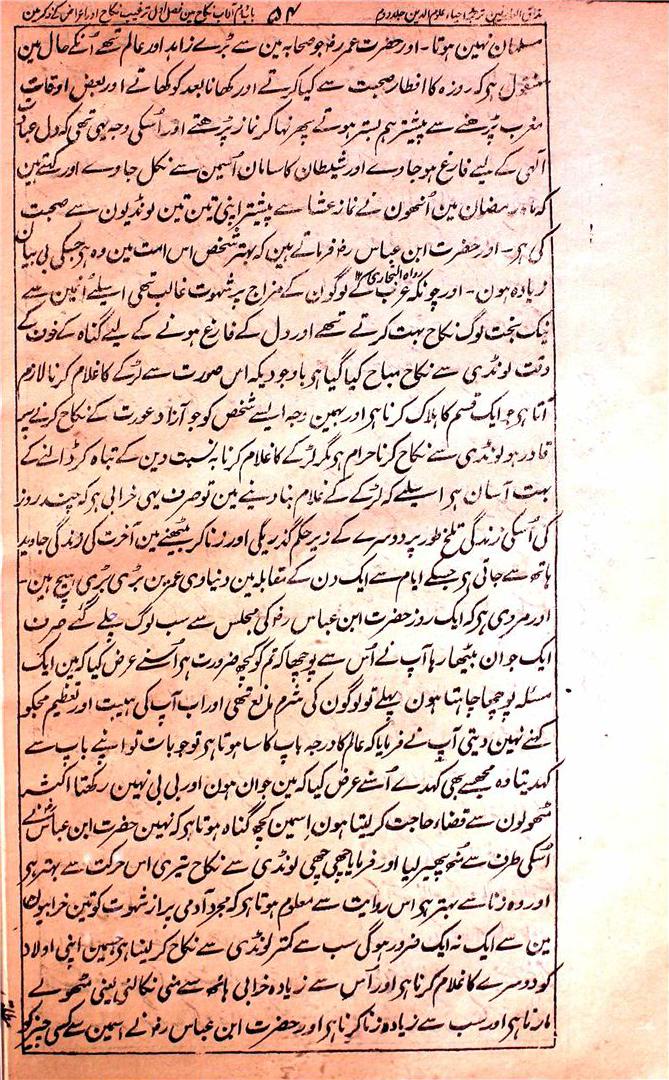 مذاق العارفین ترجمہ احیاء علوم الدین جلد دوم ۵۴ باب دوم آداب نکاح مین فصل اول ترغیب نکاح اور اعراض کے ذکر مین
مسلمان نہین ہوتا۔ اور حضرت عمر رضہ جو صحابہ مین سے بڑے زاہد اور عالم تھے اُنکے حال مین
منقول ہی کہ روزہ کا افطار صحبت سے کیا کرتے اور کھانا بعد کو کھاتے اور بعض اوقات
مغرب پڑھنے سے پیشتر ہم بستر ہوتے پھر نہا کر نماز پڑھتے اور اُسکی وجہ یہی تھی کہ دل عبادت
آلہی کے لیے فارغ ہو جاوے اور شیطان کا سامان اُسمین سے نکل جاوے اور کہتے ہین
کہ ماہ رمضان مین اُنھون نے نماز عشا سے پیشتر اپنی تین تین لونڈیون سے صحبت
کی ہی۔ اور حضرت ابن عباس رضہ فرماتے ہین کہ بہتر شخص اس امت مین وہ ہی جسکی بی بیان
زیادہ ہون۔ رواہ البخاری ۱۲ اور چونکہ عرب کے لوگون کے مزاج پر شہوت غالب تھی اسیلیے اُنمین سے
نیک بخت لوگ نکاح بہت کرتے تھے اور دل کے فارغ ہونے کے لیے گناہ کے خوف کے
وقت لونڈی سے نکاح مباح کیا گیا ہی باوجودیکہ اس صورت سے لڑکے کا غلام کرنا لازم
آتا ہی جو ایک قسم کا ہلاک کرنا ہی اور بہمین وجہ ایسے شخص کو جو آزاد عورت کے نکاح کرنے پر
قادر ہو لونڈی سے نکاح کرنا حرام ہی مگر لڑکے کا غلام کرنا بہ نسبت دین کے تباہ کر ڈالنے کے
بہت آسان ہی اسیلیے کہ لڑکے کے غلام بنا دینے مین تو صرف یہی خرابی ہی کہ چند روز
کی اُسکی زندگی تلخ طور پر دوسرے کے زیر حکم گذریگی اور زنا کر بیٹھنے مین آخرت کی زندگی جاوید
ہاتھ سے جاتی ہی جسکے ایام سے ایک دن کے مقابلہ مین دنیاوی عمرین بڑی بڑی ہیچ ہین۔
اور مروی ہی کہ ایک روز حضرت ابن عباس رضہ کی مجلس سے سب لوگ چلے گئے صرف
ایک جوان بیٹھا رہا آپ نے اُس سے پوچھا کہ تم کو کچھ ضرورت ہی اُسنے عرض کیا کہ مین ایک
مسئلہ پوچھا چاہتا ہون پہلے تو لوگون کی شرم مانع تھی اور اب آپ کی ہیبت اور تعظیم مجکو
کہنے نہین دیتی آپ نے فرمایا کہ عالم کا درجہ باپ کا سا ہوتا ہی تو جو بات تو اپنے باپ سے
کہدیتا وہ مجھسے بھی کہدے اُسنے عرض کیا کہ مین جوان ہون اور بی بی نہین رکھتا اکثر
مٹھولون سے قضاء حاجت کر لیتا ہون اسمین کچھ گناہ ہوتا ہی کہ نہین حضرت ابن عباس رضہ نے
اُسکی طرف سے مُنھ پھیر لیا اور فرمایا چھی چھی لونڈی سے نکاح تیری اس حرکت سے بہتر ہی
اور وہ زنا سے بہتر ہی اس روایت سے معلوم ہوتا ہی کہ مجرد آدمی پر از شہوت کو تین خرابیون
مین سے ایک نہ ایک ضرور ہوگی سب سے کمتر لونڈی سے نکاح کر لینا ہی جسمین اپنی اولاد
کو دوسرے کا غلام کرنا ہی اور اُس سے زیادہ خرابی ہاتھ سے منی نکالنی یعنی مٹھولے
مارنا ہی اور سب سے زیادہ زنا کرنا ہی اور حضرت ابن عباس رضہ نے اسمین سے کسی چیز کو